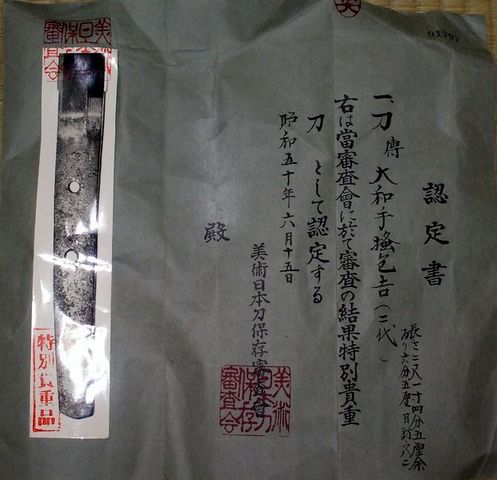 01797
認定書
一、刀 傳 大和手掻包吉(二代)
長さ二尺一寸四分五厘余
反り六分五厘目釘穴二
右は當審査會に於て審査の結果特別貴重
刀 として認定する
昭和五十年六月十五日
美術日本刀保存審査會
殿
美術日本刀保存審査会
特別貴重品